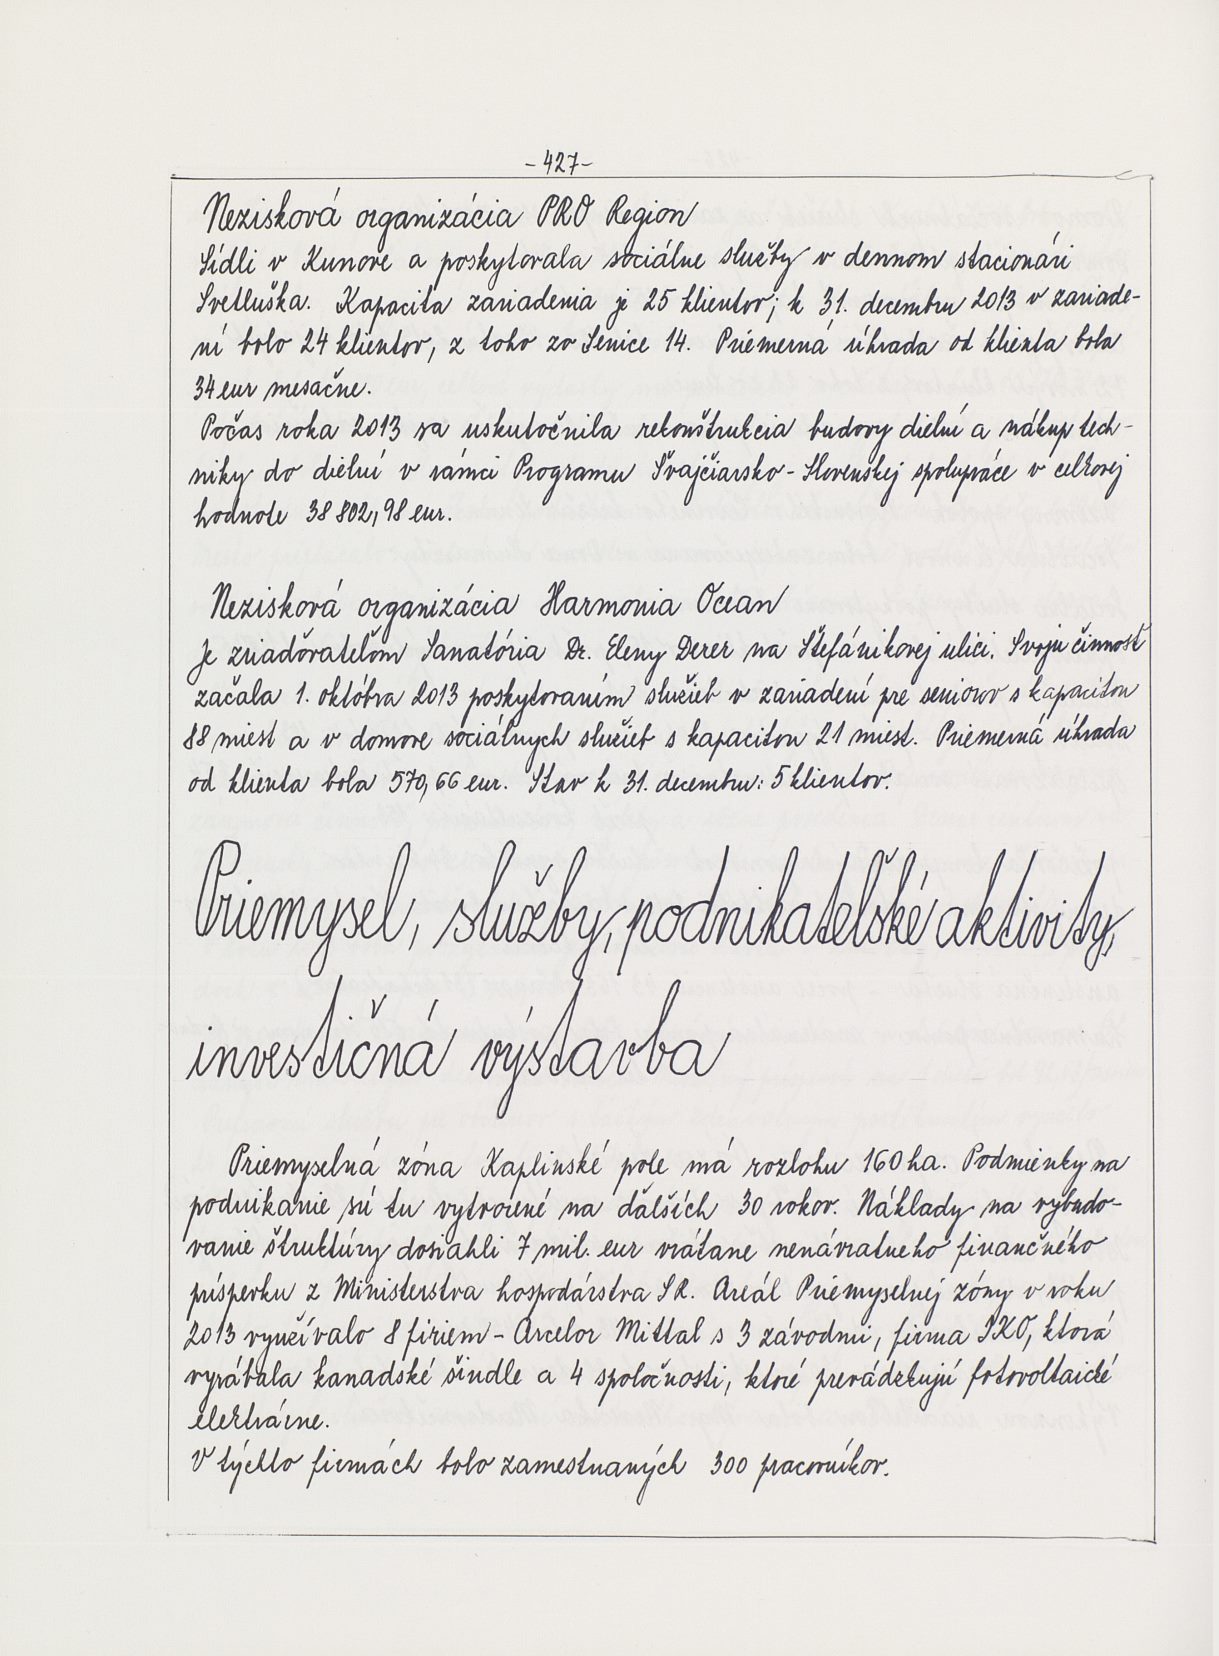 - 427 -
Nezisková organizácia PRO Region
Sídli v Kunove a poskytovala sociálne služby v dennom stacionári
Svetluška. Kapacita zariadenia je 25 klientov; k 31. decembru 2013 v zariade-
ní bolo 24 klientov, z toho zo Senice 14. Priemerná úhrada od klienta bola
34 eur mesačne.
Počas roka 2013 sa uskutočnila rekonštrukcia budovy dielní a nákup tech-
niky do dielní v rámci Programu Švajčiarsko - Slovenskej spolupráce v celkovej
hodnote 38 802,98 eur.
Nezisková organizácia Harmonia Ocean
Je zriaďovateľom Sanatória Dr. Eleny Derer na Štefánikovej ulici. Svoju činnosť
začala 1. októbra 2013 poskytovaním služieb v zariadení pre seniorov s kapacitou
88 miest a v domove sociálnych služieb s kapacitou 21 miest. Priemerná úhrada
od klienta bola 570,66 eur. Stav k 31. decembru: 5 klientov.
Priemysel, služby, podnikateľské aktivity,
investičná výstavba
Priemyselná zóna Kaplinské pole má rozlohu 160 ha. Podmienky na
podnikanie sú tu vytvorené na ďalších 30 rokov. Náklady na vybudo-
vanie štruktúry dosiahli 7 mil. eur vrátane nenávratného finančného
príspevku z Ministerstva hospodárstva SR. Areál Priemyselnej zóny v roku
2013 využívalo 8 firiem - Arcelor Mittal s 3 závodmi, firma IKO, ktorá
vyrábala kanadské šindle a 4 spoločnosti, ktoré prevádzkujú fotovoltaické
elektrárne.
V týchto firmách bolo zamestnaných 300 pracovníkov.